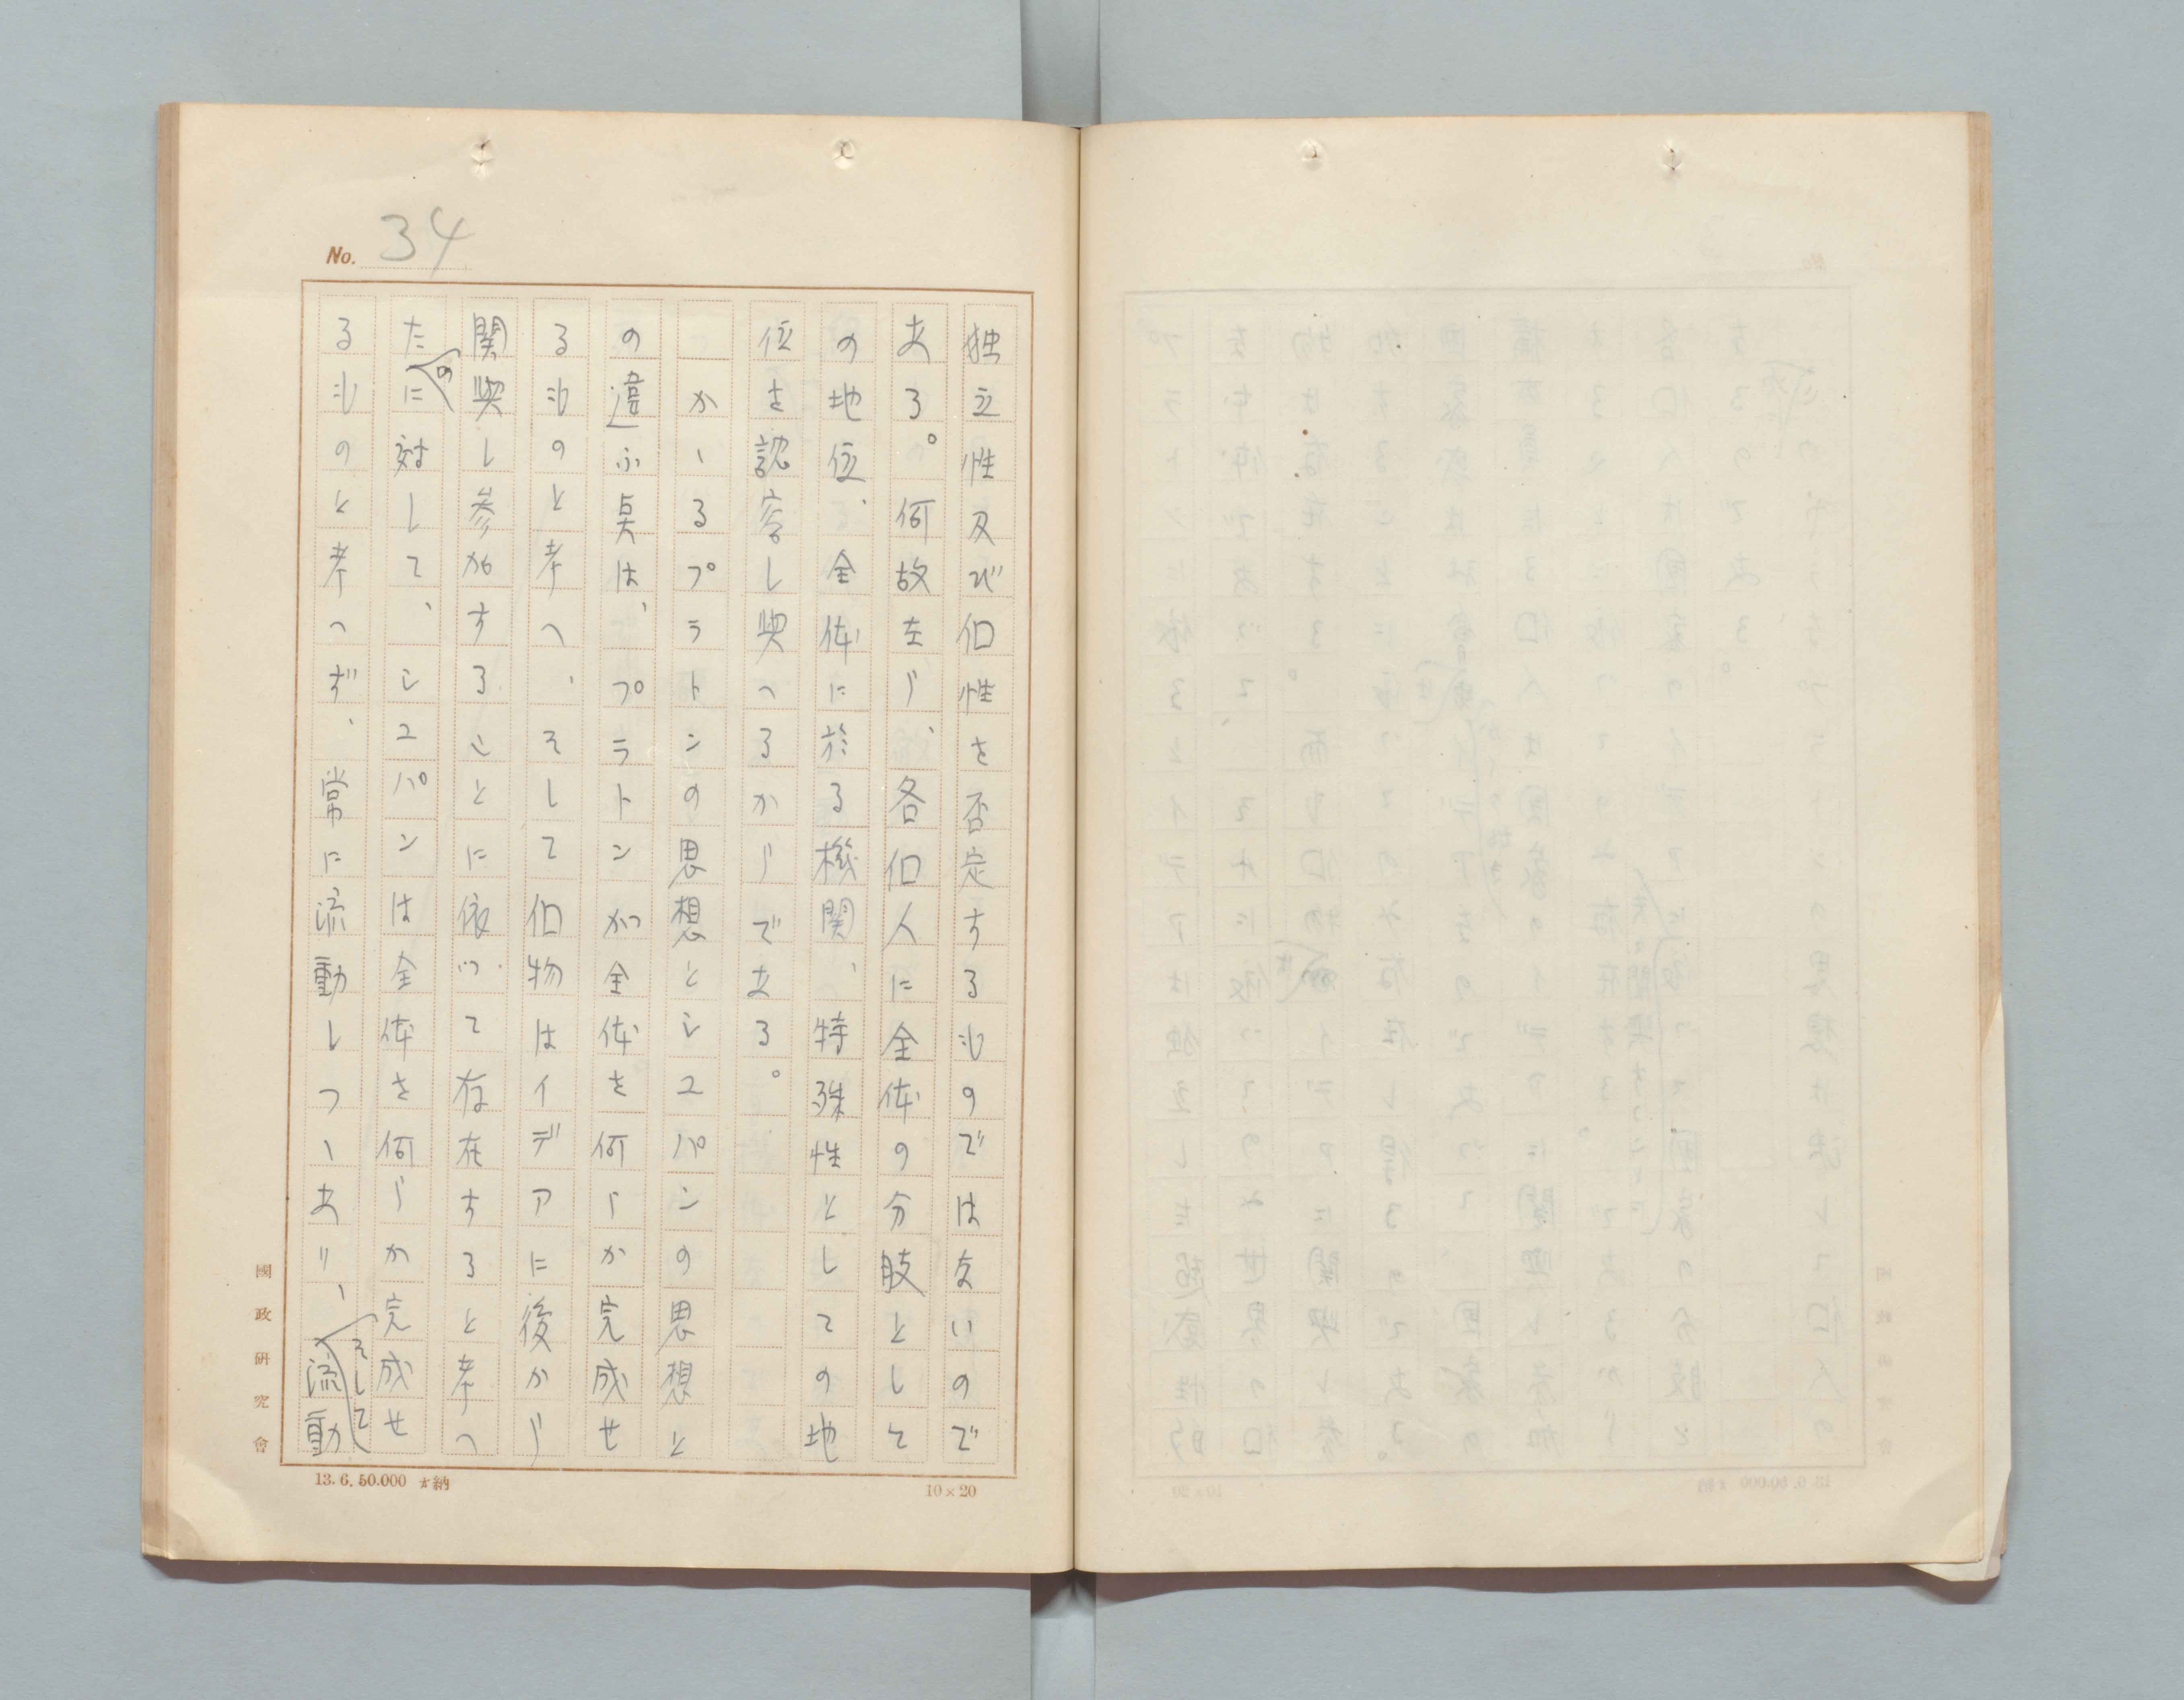 No. 34
独立性及び個性を否定するものではないので
ある。何故なら、各個人に全体の分肢として
の地位、全体に於る機関、特殊性としての地
位を認容し与へるからである。
かゝるプラトンの思想とシュパンの思想と
の違ふ点は、プラトンが全体を何らか完成せ
るものと考へ、そして個物はイデアに後から
関与し参加することに依つて存在すると考へ
たのに対して、シユパンは全体を何らか完成せ
るものと考へず、常に流動しつゝあり、そして流動
國政研究會
13. 6. 50.000 納
10×20